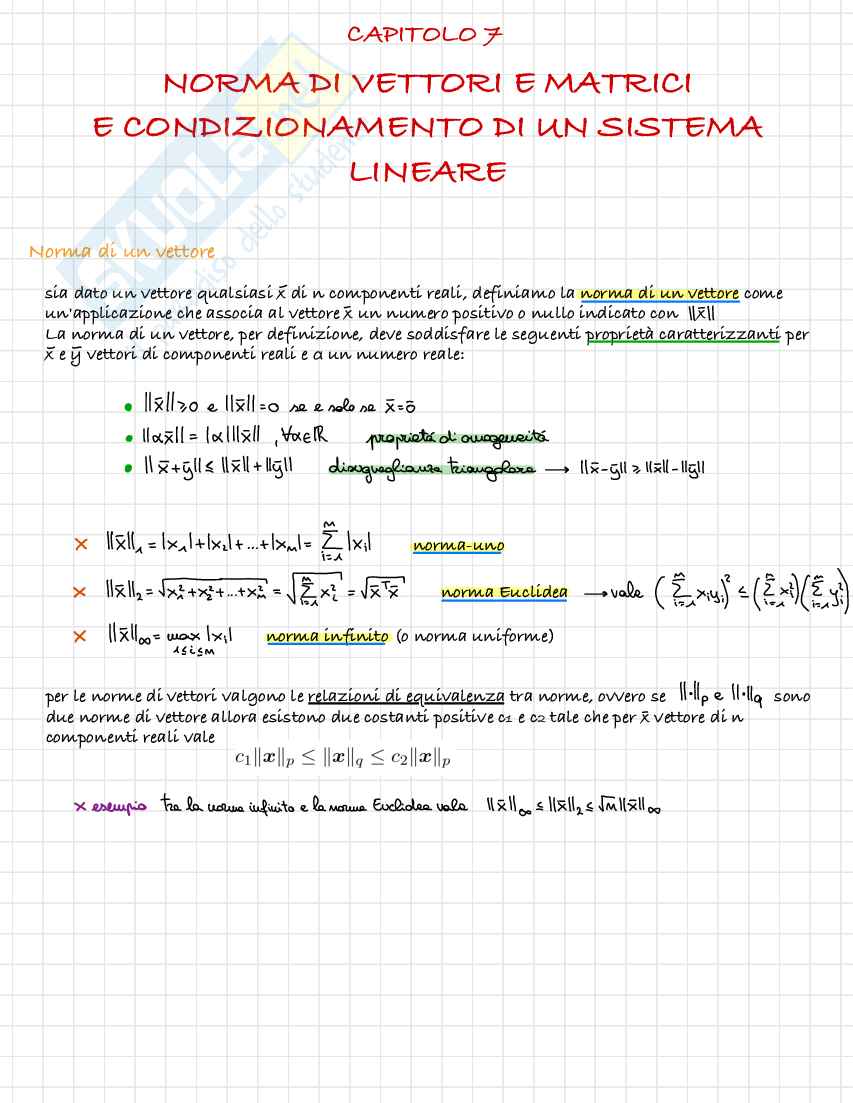 CAPITOLO 7
NORMA DI VETTORI E MATRICI
E CONDIZIONAMENTO DI UN SISTEMA
LINEARE
SKUOLA.net
paradiso dello studente
Norma di un vettore
sia dato un vettore qualsiasi x̄ di n componenti reali, definiamo la norma di un vettore come
un'applicazione che associa al vettore x̄ un numero positivo o nullo indicato con ||x̄||
La norma di un vettore, per definizione, deve soddisfare le seguenti proprietà caratterizzanti per
x̄ e ȳ vettori di componenti reali e α un numero reale:
• ||x̄|| ≥ 0 e ||x̄|| = 0 se e solo se x̄ = 0̄
• ||αx̄|| = |α| ||x̄|| , ∀α∈ℝ proprietá di omogeneitá
• ||x̄+ȳ|| ≤ ||x̄|| + ||ȳ|| disuguaglianza triangolare → ||x̄-ȳ|| ≥ ||x̄|| - ||ȳ||
× ||x̄||₁ = |x₁| + |x₂| + ... + |xₙ| = Σⁿᵢ₌₁ |xᵢ| norma-uno
× ||x̄||₂ = √(x₁² + x₂² + ... + xₙ²) = √(Σⁿᵢ₌₁ xᵢ²) = √(x̄ᵀx̄) norma Euclidea → vale (Σⁿᵢ₌₁ xᵢyᵢ)² ≤ (Σⁿᵢ₌₁ xᵢ²)(Σⁿᵢ₌₁ yᵢ²)
× ||x̄||∞ = max |xᵢ| norma infinito (o norma uniforme)
1≤i≤n
per le norme di vettori valgono le relazioni di equivalenza tra norme, ovvero se ||·||p e ||·||q sono
due norme di vettore allora esistono due costanti positive c1 e c2 tale che per x̄ vettore di n
componenti reali vale
c₁||x||p ≤ ||x||q ≤ c₂||x||p
× esempio tra la norma infinito e la norma Euclidea vale ||x̄||∞ ≤ ||x̄||₂ ≤ √n ||x̄||∞